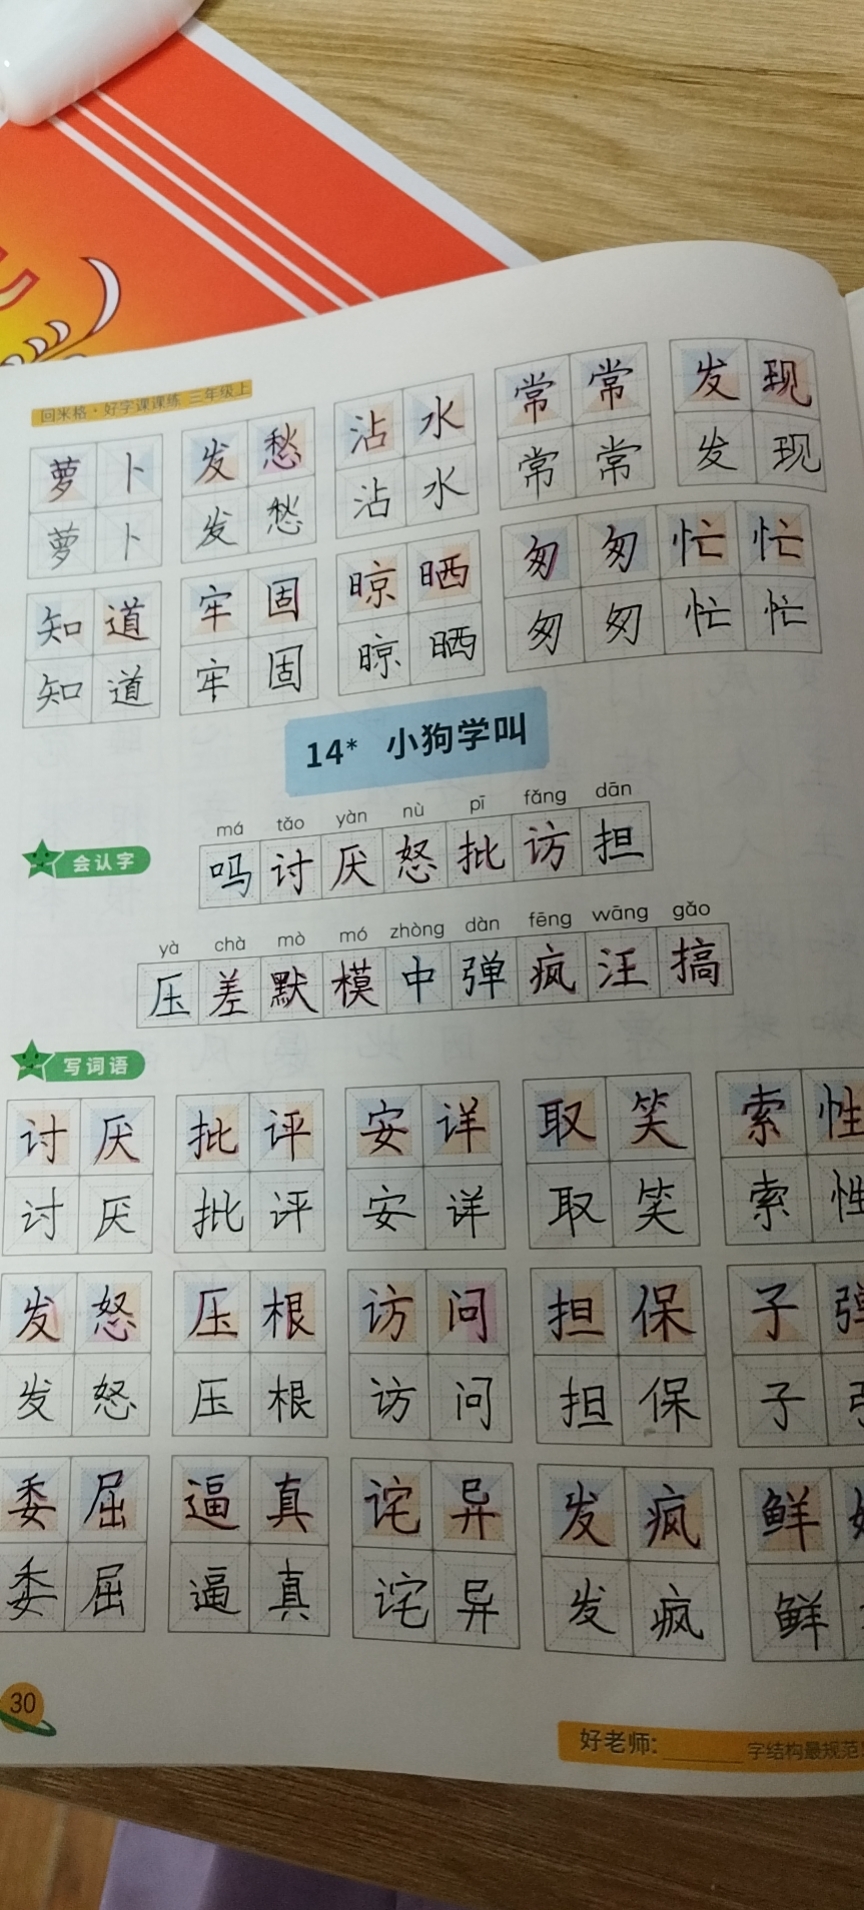 回米格·好字课课练 三年级上
萝卜 发愁 沾水 常常 发现
萝卜 发愁 沾水 常常 发现
知道 牢固 晾晒 匆匆忙忙
知道 牢固 晾晒 匆匆忙忙
14* 小狗学叫
má tǎo yàn nù pī fǎng dān
会认字 吗讨厌怒批访担
yà chà mò mó zhòng dàn fēng wāng gǎo
压差默模中弹疯汪搞
写词语
讨厌 批评 安详 取笑 索性
讨厌 批评 安详 取笑 索性
发怒 压根 访问 担保 子弹
发怒 压根 访问 担保 子
委屈 逼真 诧异 发疯 鲜
委屈 逼真 诧异 发疯 鲜
30
好老师:______字结构最规范